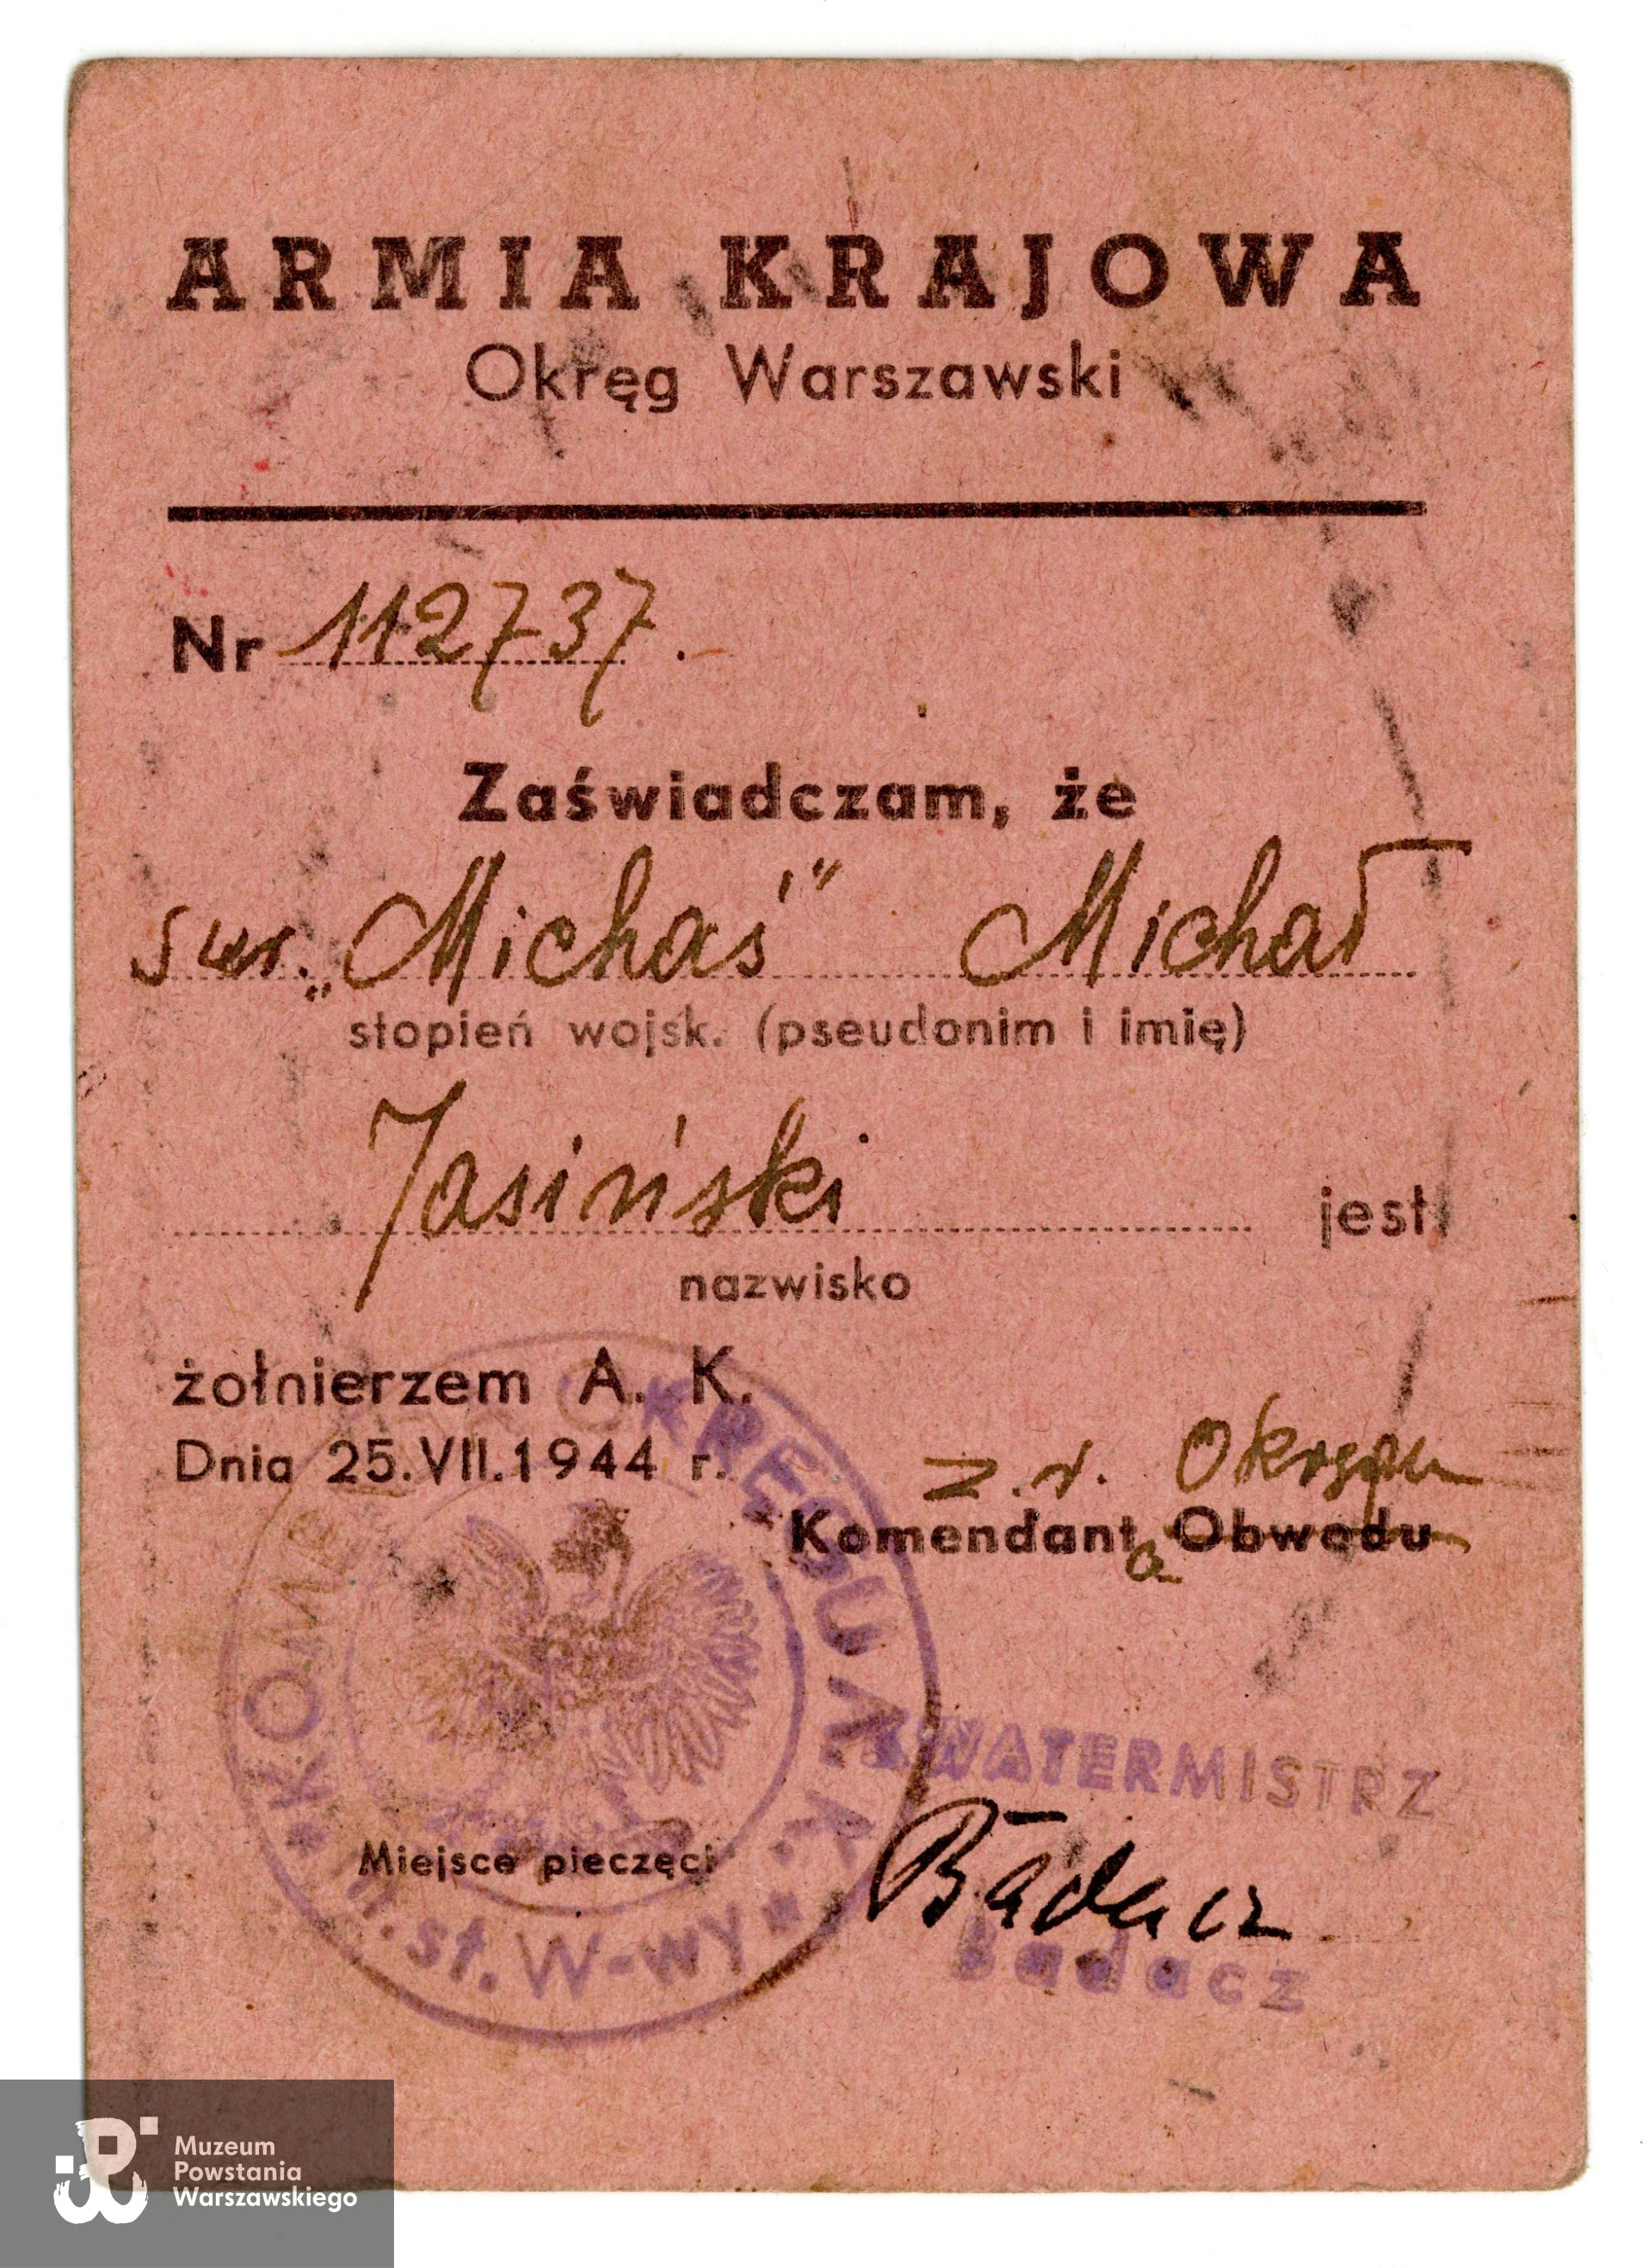 ARMIA KRAJOWA
Okręg Warszawski
Nr 112737.
Zaświadczam, że
„Michaś" Michał
stopień wojsk. (pseudonim i imię)
Jasiński jest
nazwisko
żołnierzem A. K.
Dnia 25.VII.1944 r.
z.r. Okręgu
Komendanta Obwodu
KOMENDA OKRĘGU A.K.
m.st. W-wy
Miejsce pieczęci
KWATERMISTRZ
Badacz
Badacz
Muzeum
Powstania
Warszawskiego